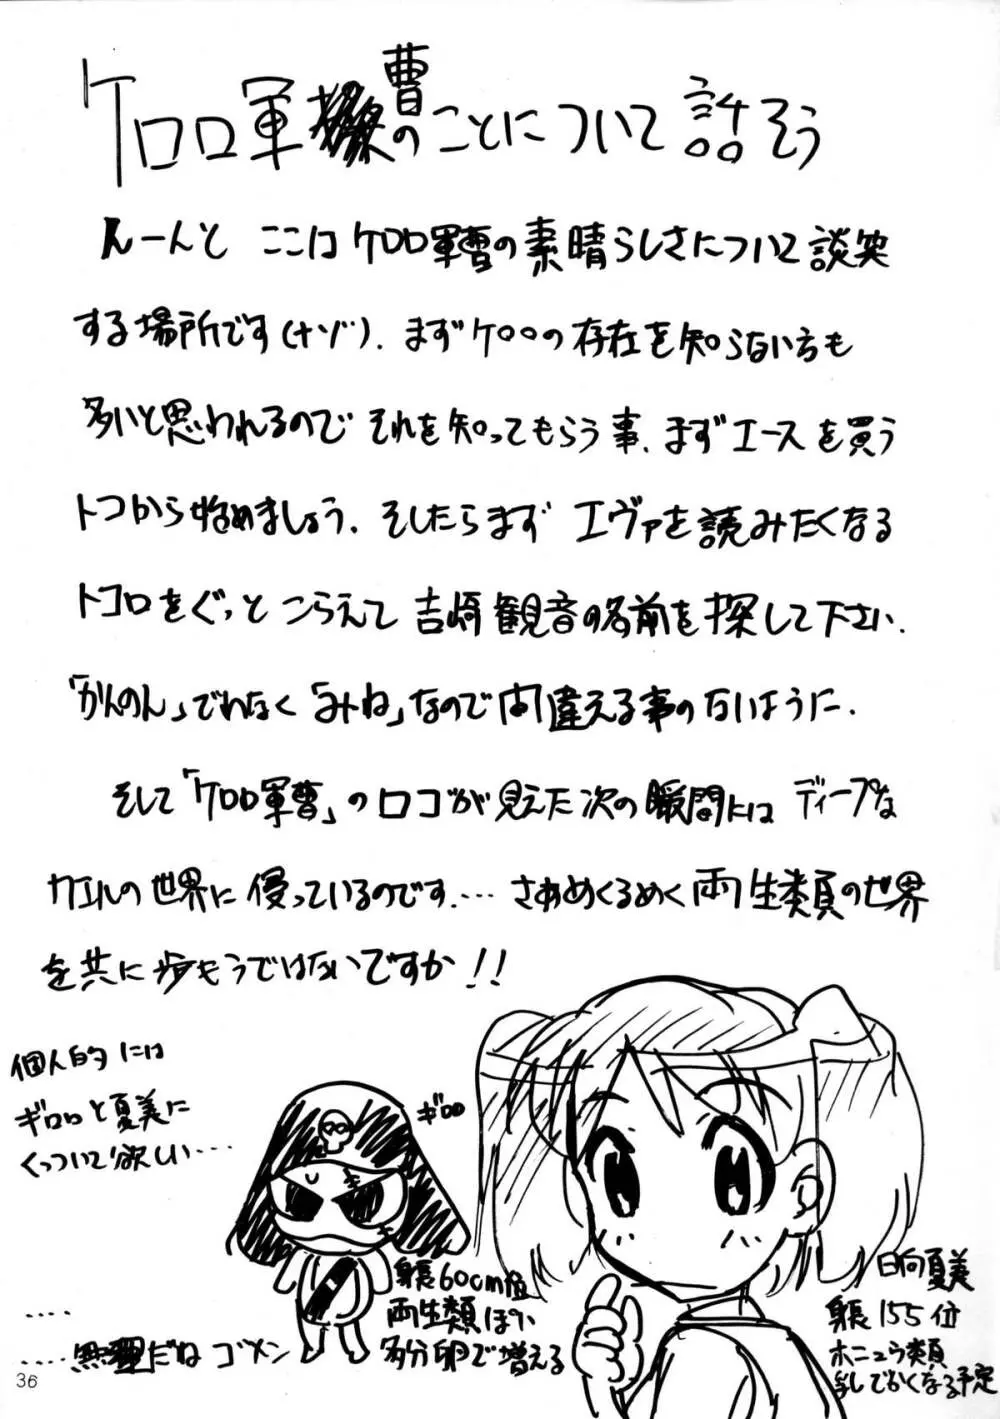 ケロロ軍曹のことについて話そう
えーんと ここはケロロ軍曹の素晴らしさについて談笑
する場所です(ナゾ). まずケロロの存在を知らない方も
多いと思われるのでそれを知ってもらう事、まずエースを買う
トコから始めましょう. そしたらまず エヴァを読みたくなる
トコロをぐっと こらえて 吉崎観音の名前を探して下さい.
「かんのん」でわなく「みね」なので間違える事のないように.
そして「ケロロ軍曹」のロゴが見えた次の瞬間にはディープな
カエルの世界に侵っているのです.… さあめくるめく両生類の世界
を共に歩もうではないですか!!
個人的には
ギロロと夏美に
くっついて欲しい….
ギロロ
身長60cm位
両生類ぽい
多分卵で増える
日向夏美
身長155位
ホニュウ類
乳でかくなる予定
….
….無理だね ゴメン
36